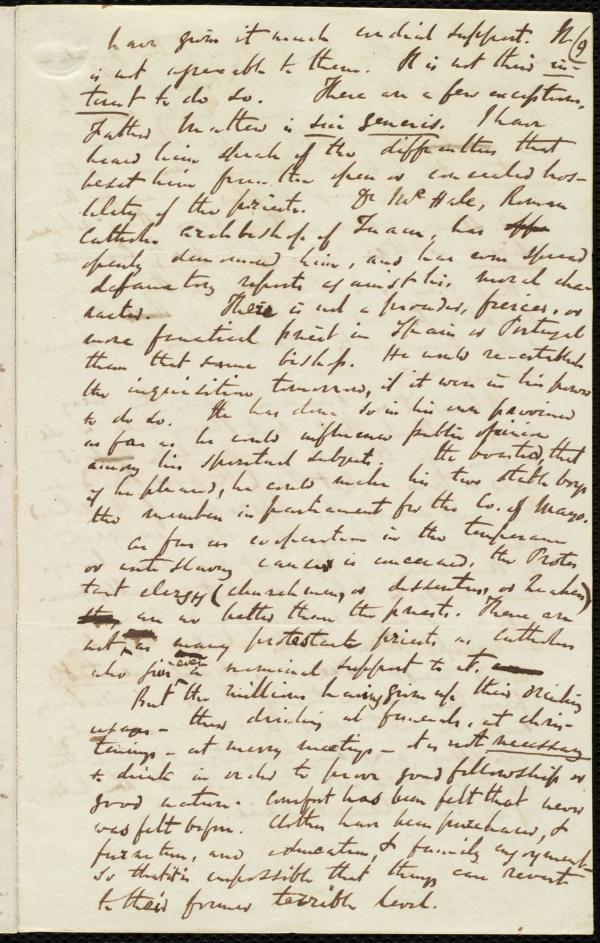 have given it much cordial support. It (9
is not agreeable to them. It is not their in-
terest to do so. There are a few exceptions.
Father Mathew is sui generis. I have
heard him speak of the difficulties that
beset him from the open or concealed hos-
tility of the priests. Dr McHale, Roman
Catholic archbishop of Tuam, has
openly denounced him, and has even spread
defamatory reports against his moral cha-
racter. There is not a prouder, fiercer, or
more fanatical priest in Spain or Portugal
than that same bishop. He would re-establish
the inquisition tomorrow, if it were in his power
to do so. He has done so in his own province
as far as he could influence public opinion
among his spiritual subjects. He boasted, that
if he pleased, he could make his two stable boys
the members in parliament for the Co. of Mayo.
As far as cooperation in the temperance
or anti slavery causes is concerned, the Protes
tant clergy (churchmen, or dissenters, or Quakers)
are no better than the priests. There are
not as many protestant priests as catholics
who give even a nominal support to it.
But the millions having given up their drinking
usages - their drinking at funerals, at chris-
tenings - at merry meetings - it is not necessary
to drink in order to prove good fellowship or
good nature. Comfort has been felt that never
was felt before. Clothes have been purchased, &
furniture, and education, & family enjoyment
So that it is impossible that things can revert
to their former terrible level.